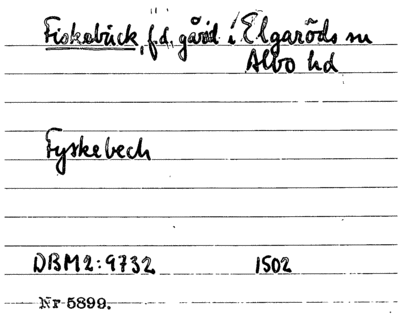 Fiskebäck, f.d. gård i Elgaröds sn
Albo hd
Fyskebech
DBM2:9732 1502
Nr 5899.